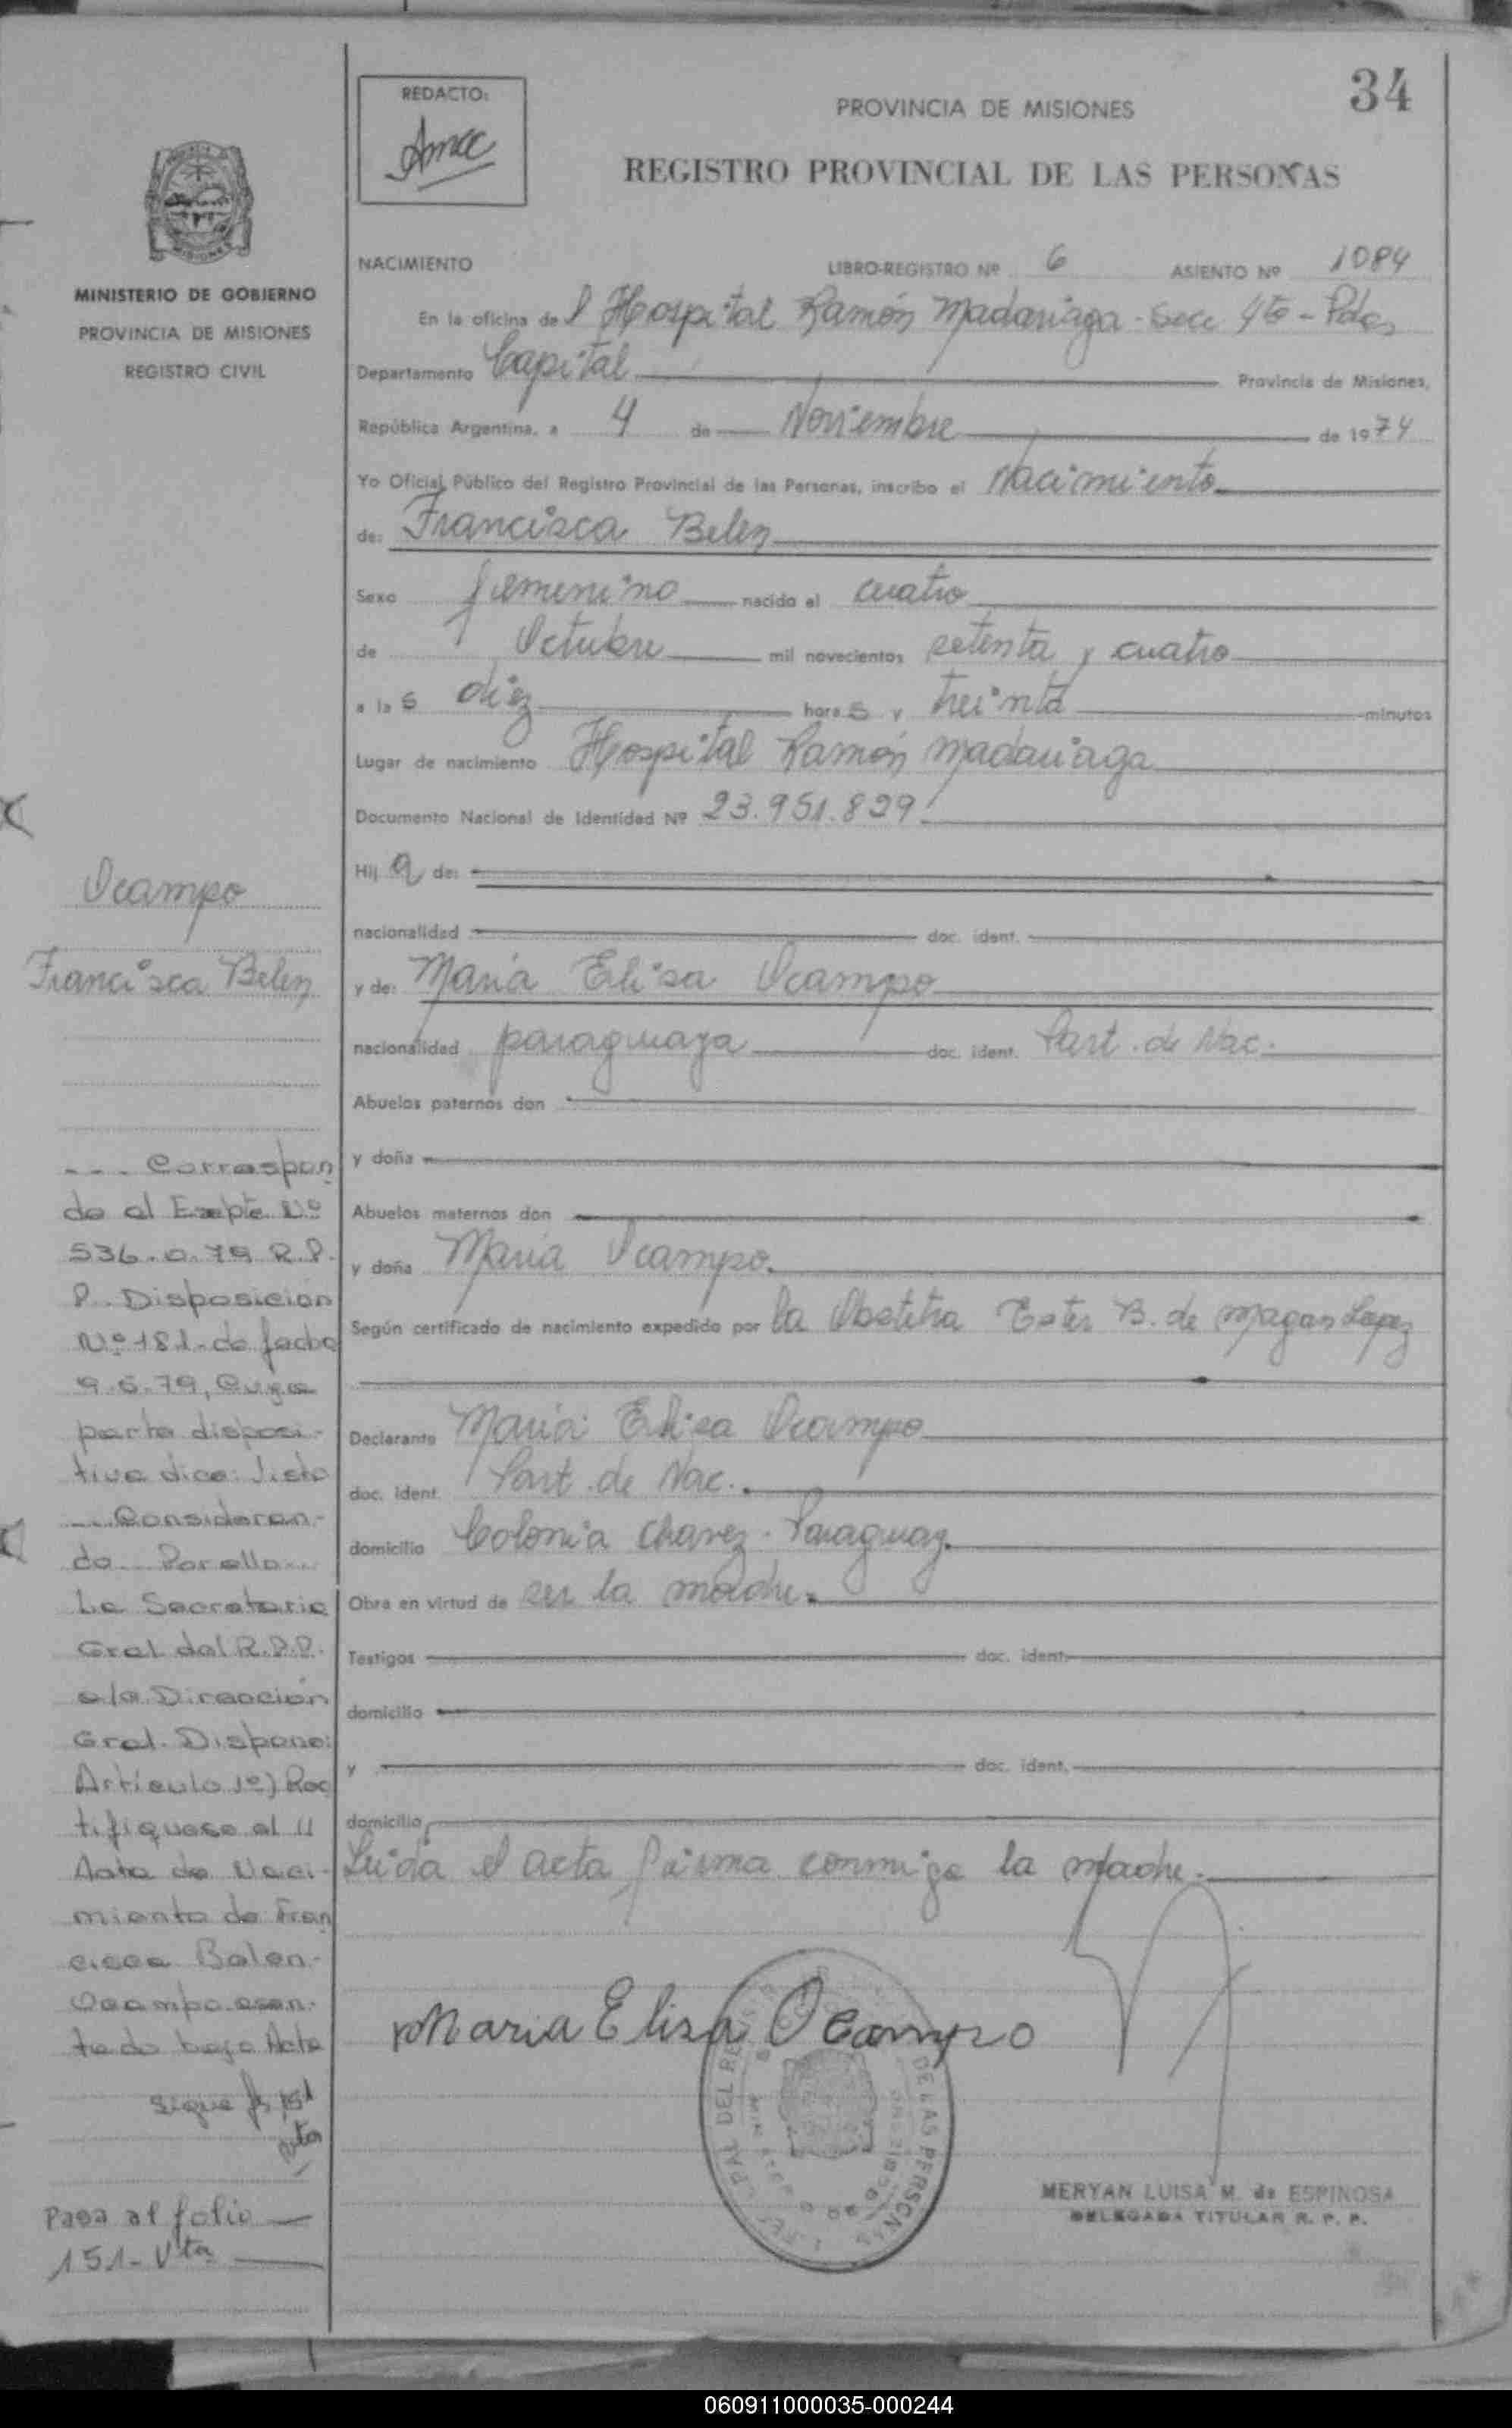 34
REDACTO:
PROVINCIA DE MISIONES
REGISTRO PROVINCIAL DE LAS PERSONAS
MISIONES
MINISTERIO DE GOBIERNO
PROVINCIA DE MISIONES
REGISTRO CIVIL
NACIMIENTO LIBRO-REGISTRO Nº 6 ASIENTO Nº 1084
En la oficina del Hospital Ramón Madariaga - Secc 4to - Pdas
Departamento Capital Provincia de Misiones,
República Argentina, a 4 de Noviembre de 1974
Yo Oficial Público del Registro Provincial de las Personas, inscribo el Nacimiento
de: Francisca Belen
Sexo femenino nacido el cuatro
de Octubre mil novecientos setenta y cuatro
a las diez horas y treinta minutos
Lugar de nacimiento Hospital Ramón Madariaga
Documento Nacional de Identidad Nº 23.951.829
Hija de:
nacionalidad doc. ident.
y de: Maria Elisa Ocampo
nacionalidad paraguaya doc. ident. Part. de Nac.
Abuelos paternos don
y doña
Abuelos maternos don
y doña Maria Ocampo.
Según certificado de nacimiento expedido por la Obstetra Ester B. de Magan Lopez
Declarante Maria Elisa Ocampo
doc. ident. Part. de Nac.
domicilio Colonia Chavez - Paraguay.
Obra en virtud de ser la madre.
Testigos doc. ident.
domicilio
y doc. ident.
domicilio
Leida el acta firma conmigo la madre.
Maria Elisa Ocampo
MERYAN LUISA M. de ESPINOSA
DELEGADA TITULAR R. P. P.
Ocampo
Francisca Belen
--- Correspon
de al Expte Nº
536-O-79 R.P.
P. Disposicion
Nº 181- de fecha
9.5.79, Cuya
parte disposi-
tiva dice: Visto
... Consideran-
do... Por ello...
La Secretaria
Gral del R.P.P.
a/a Dirección
Gral. Dispone:
Artículo 1º) Rec
tifiquese el
Acta de Naci-
miento de Fran
cisca Belen-
Ocampo asen-
tada bajo Acta
Sigue fs 151
vta
Pasa al folio
151- Vta
060911000035-000244